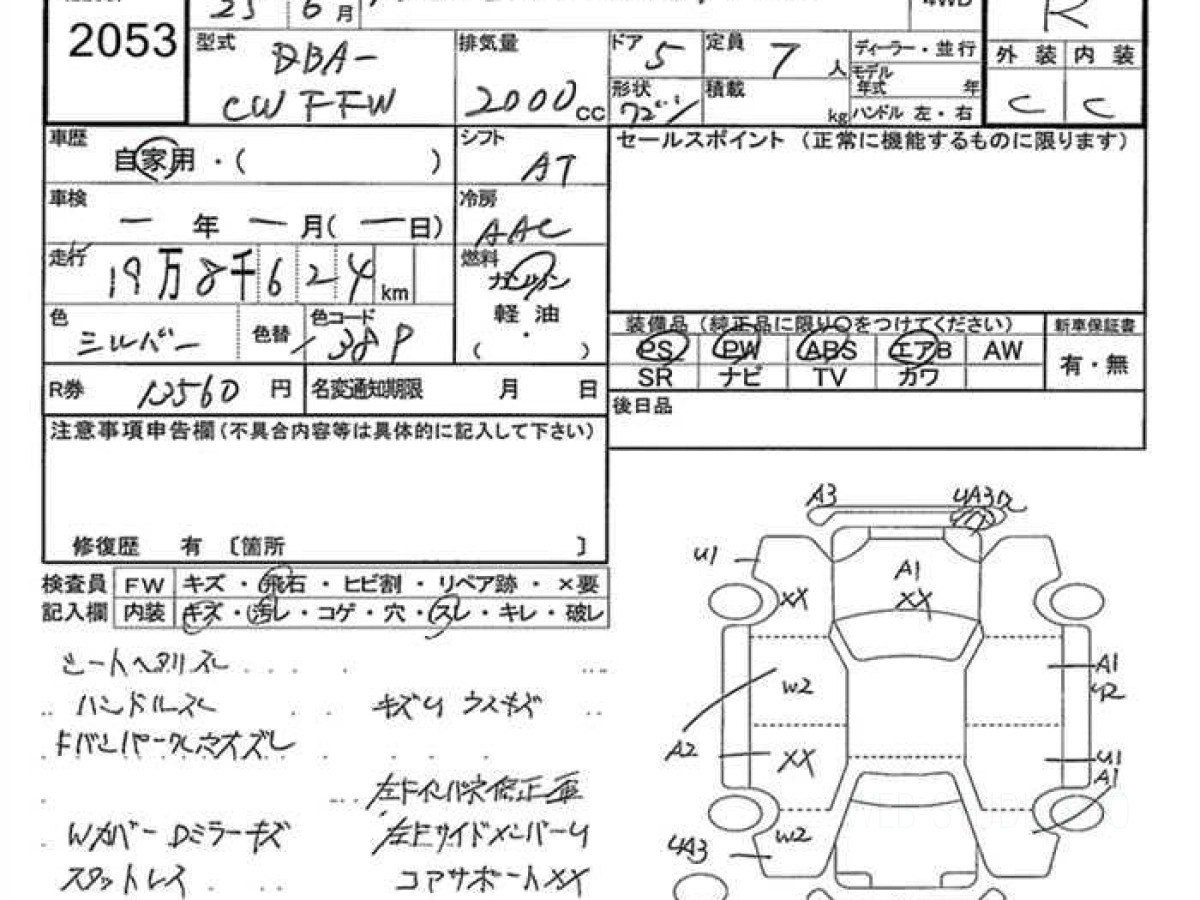 25 6月 4WD R
2053
型式 DBA-
CWFFW
排気量 2000cc
ドア 5 定員 7人 ディーラー・並行
モデル年式 年
形状 積載 kg ハンドル 左・右
外装 内装
C C
車歴 自家用・( )
シフト AT
セールスポイント (正常に機能するものに限ります)
車検 ー年ー月(ー日)
冷房 AAC
走行 19万8千624km
燃料 ガソリン
軽油
・
( )
色 シルバー 色替 色コード 38P
装備品 (純正品に限り○をつけてください) 新車保証書
PS PW ABS エアB AW 有・無
SR ナビ TV カワ
R券 12560円 名変通知期限 月 日
後日品
注意事項申告欄(不具合内容等は具体的に記入して下さい)
修復歴 有 〔箇所 〕
検査員 FW キズ・飛石・ヒビ割・リペア跡・×要
記入欄 内装 キズ・汚レ・コゲ・穴・スレ・キレ・破レ
シートヘタリスレ
ハンドルスレ キズU ウスキズ
Wカバー Dミラーキズ 左Fサイドメンバーu
スタットレス コアサポートXX
A3
U1 A1
XX XX
W2 A1
U2
A2 XX U1
A1
W2
UA3